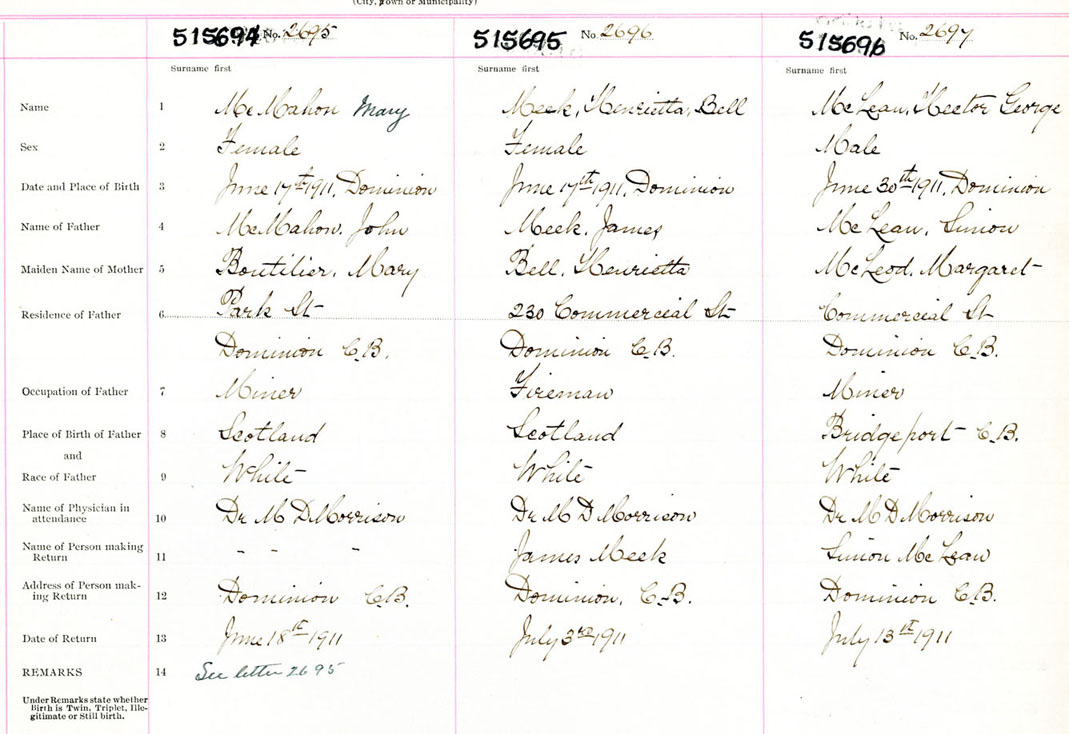 (City, Town or Municipality)
515694 No. 2695 515695 No. 2696 515696 No. 2697
Surname first Surname first Surname first
Name 1 McMahon Mary Meek, Henrietta, Bell McLean, Hector George
Sex 2 Female Female Male
Date and Place of Birth 3 June 17th 1911, Dominion June 17th 1911, Dominion June 30th 1911, Dominion
Name of Father 4 McMahon, John Meek, James McLean, Simon
Maiden Name of Mother 5 Boutilier, Mary Bell, Henrietta McLeod, Margaret
Residence of Father 6 Park St 230 Commercial St Commercial St
Dominion C.B. Dominion C.B. Dominion C.B.
Occupation of Father 7 Miner Fireman Miner
Place of Birth of Father 8 Scotland Scotland Bridgeport C.B.
and
Race of Father 9 White White White
Name of Physician in
attendance 10 Dr M D Morrison Dr M D Morrison Dr M D Morrison
Name of Person making
Return 11 - - - James Meek Simon McLean
Address of Person mak-
ing Return 12 Dominion C.B. Dominion, C.B. Dominion C.B.
Date of Return 13 June 18st 1911 July 3rd 1911 July 13st 1911
REMARKS 14 See letter 2695
Under Remarks state whether
Birth is Twin, Triplet, Ille-
gitimate or Still birth.